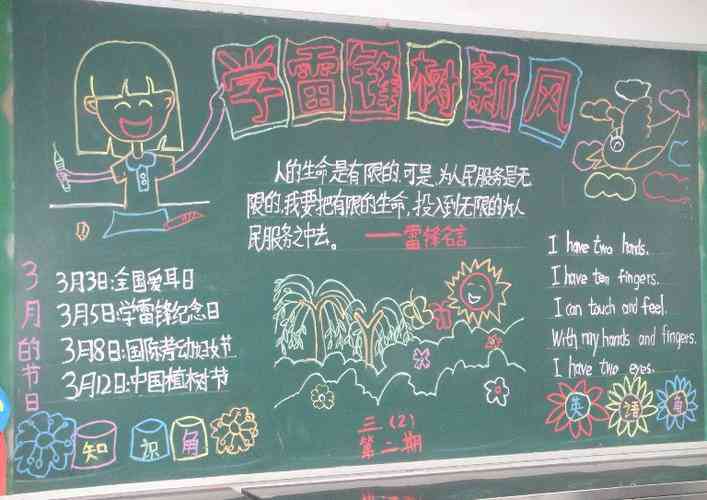 学雷锋树新风
人的生命是有限的,可是,为人民服务是无
限的,我要把有限的生命,投入到无限的为人
民服务之中去。——雷锋名言
3月的节日
3月3日:全国爱耳日
3月5日:学雷锋纪念日
3月8日:国际劳动妇女节
3月12日:中国植树节
知识角
三(2)
第二期
I have two hands.
I have ten fingers.
I can touch and feel.
With my hands and fingers.
I have two eyes.
英语角